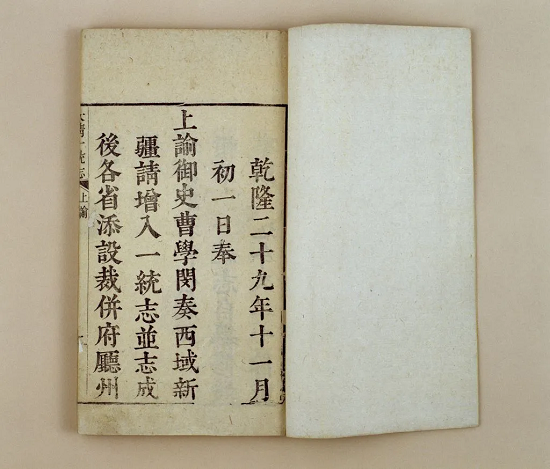 乾隆二十九年十一月
初一日奉
上諭御史曹學閔奏西域新
疆請增入一統志並志成
後各省添設裁併府廳州
大清一統志 上諭